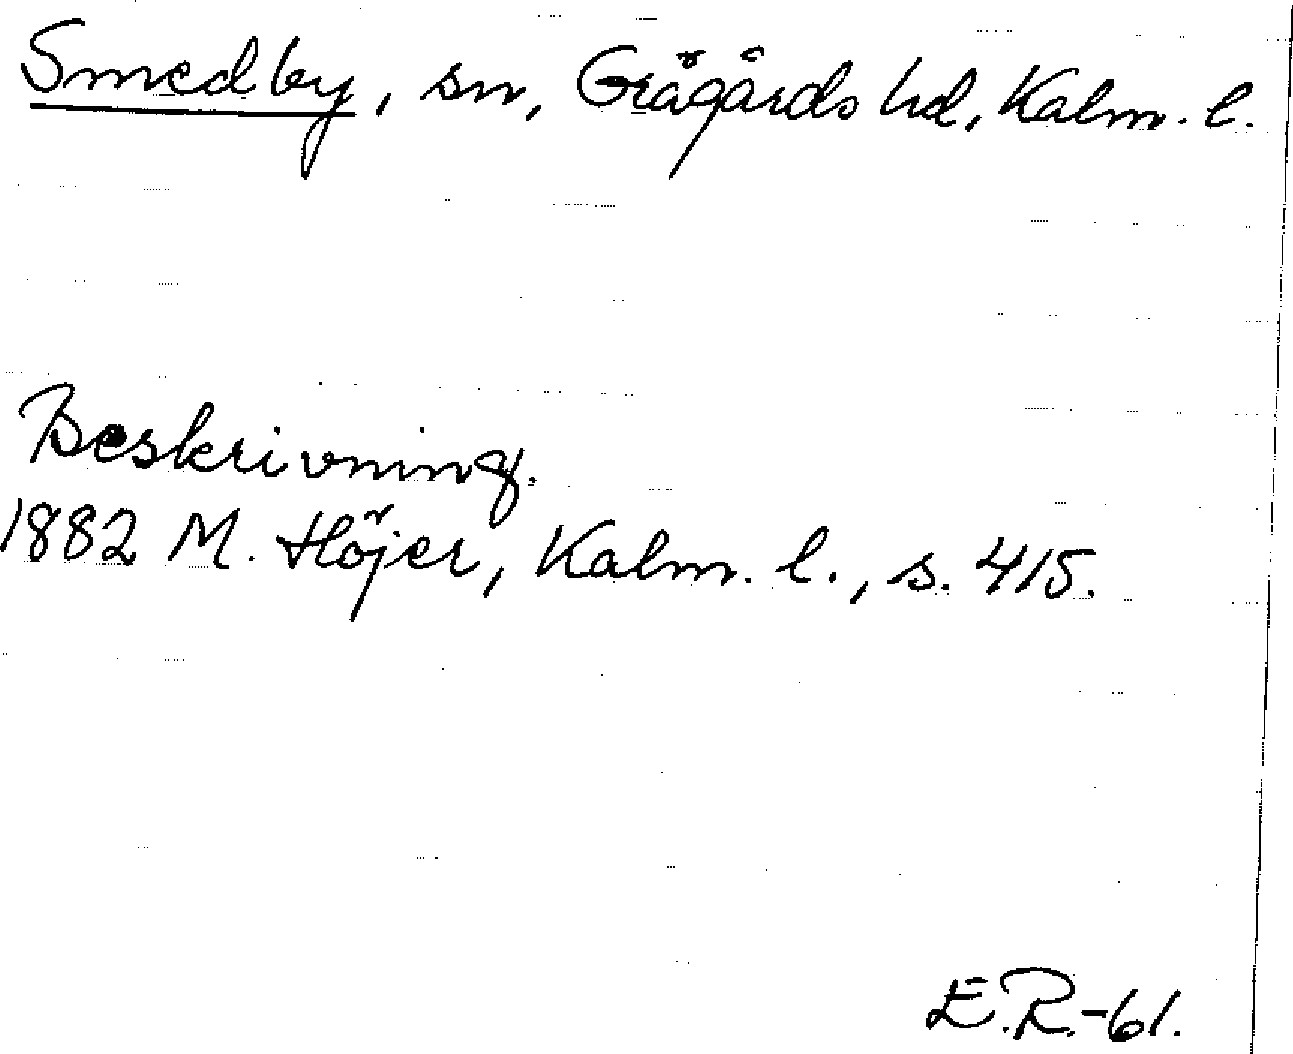 Smedby, sn, Gräsgårds hd, Kalm. l.
Beskrivning.
1882 M. Höjer, Kalm. l., s. 415.
E.R.-61.